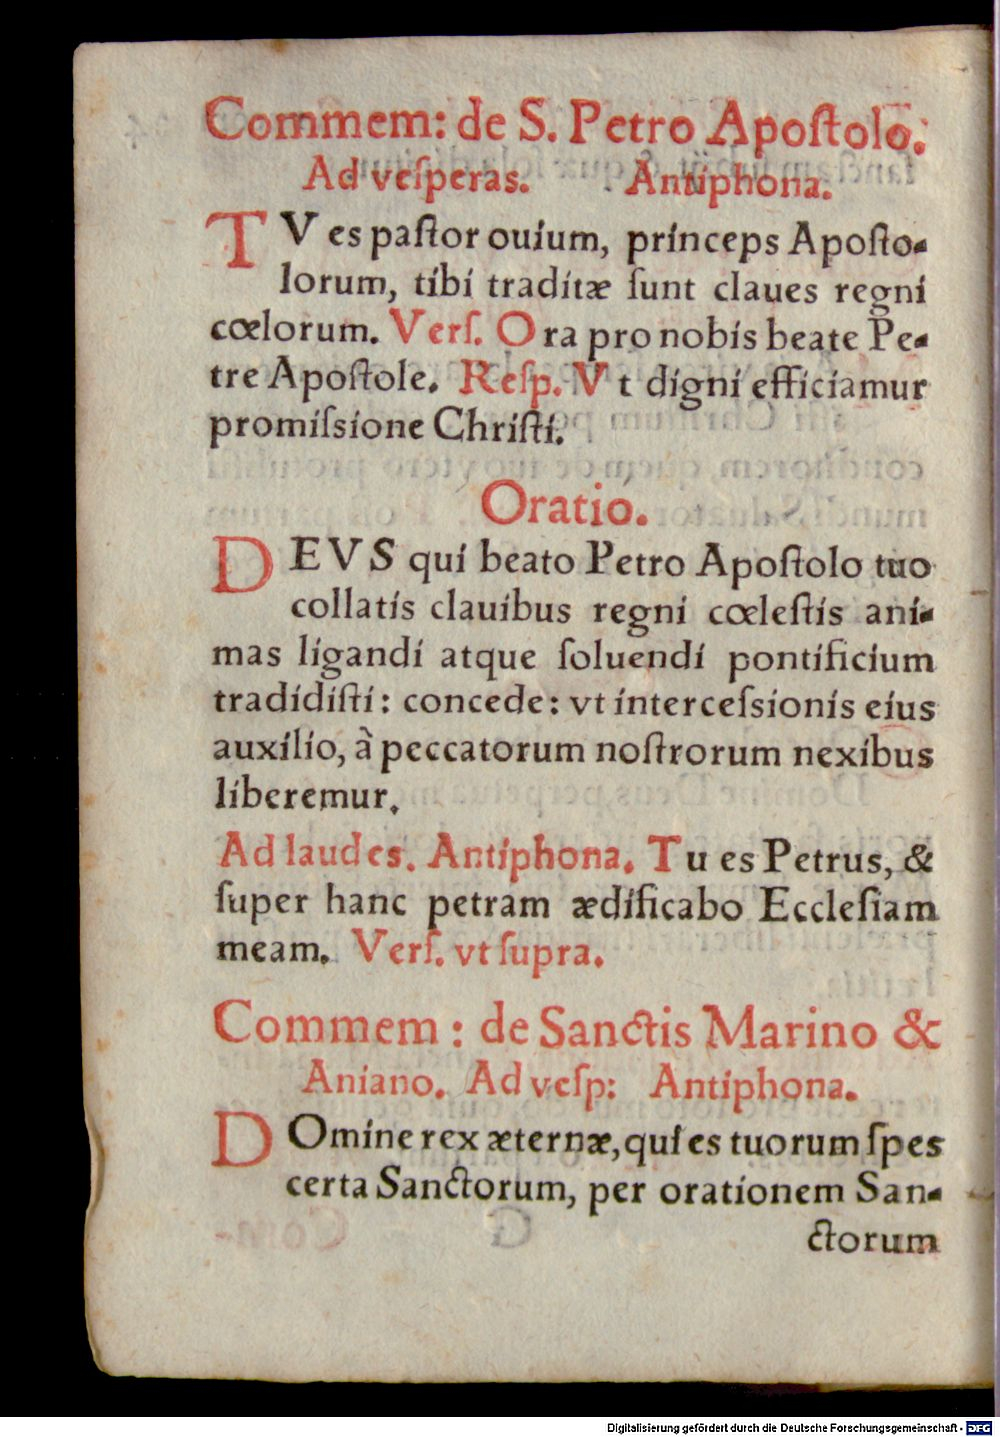 Commem: de S. Petro Apoſtolo.
Ad veſperas. Antiphona.
TV es paſtor ouium, princeps Apoſto-
lorum, tibi traditæ ſunt claues regni
cœlorum. Verſ. Ora pro nobis beate Pe-
tre Apoſtole. Reſp. Vt digni efficiamur
promiſsione Chriſti.
Oratio.
DEVS qui beato Petro Apoſtolo tuo
collatis clauibus regni cœleſtis ani-
mas ligandi atque ſoluendi pontificium
tradidiſti: concede: vt interceſsionis eius
auxilio, à peccatorum noſtrorum nexibus
liberemur.
Ad laudes. Antiphona. Tu es Petrus, &
ſuper hanc petram ædificabo Eccleſiam
meam. Verſ. vt ſupra.
Commem: de Sanctis Marino &
Aniano. Ad veſp: Antiphona.
DOmine rex æternæ, qui es tuorum ſpes
certa Sanctorum, per orationem San-
ctorum
Digitalisierung gefördert durch die Deutsche Forschungsgemeinschaft - DFG